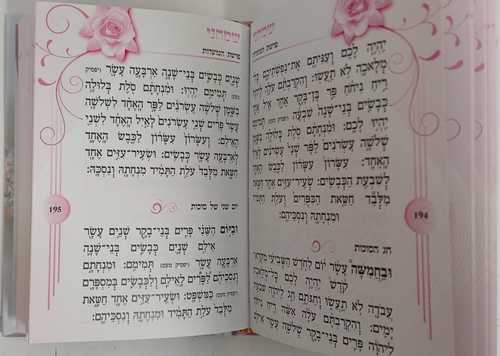 שמחני
פרשת המועדות
יִהְיֶה לָכֶם וְעִנִּיתֶם אֶת־נַפְשֹׁתֵיכֶם כׇּל־
מְלָאכָה לֹא תַעֲשׂוּ: וְהִקְרַבְתֶּם עֹלָה לַיהוָה
רֵיחַ נִיחֹחַ פַּר בֶּן־בָּקָר אֶחָד אַיִל אֶחָד
כְּבָשִׂים בְּנֵי־שָׁנָה שִׁבְעָה
יִהְיוּ לָכֶם: וּמִנְחָתָם סֹלֶת בְּלוּלָה
בַשָּׁמֶן שְׁלֹשָׁה עֶשְׂרֹנִים לַפָּר שְׁנֵי
עֶשְׂרֹנִים לָאַיִל הָאֶחָד: עִשָּׂרוֹן
עִשָּׂרוֹן לַכֶּבֶשׂ הָאֶחָד
לְשִׁבְעַת הַכְּבָשִׂים: שְׂעִיר־עִזִּים אֶחָד חַטָּאת
מִלְּבַד חַטַּאת הַכִּפֻּרִים וְעֹלַת הַתָּמִיד
וּמִנְחָתָהּ וְנִסְכֵּיהֶם:
חג הסוכות
וּבַחֲמִשָּׁה עָשָׂר יוֹם לַחֹדֶשׁ הַשְּׁבִיעִי מִקְרָא־
קֹדֶשׁ יִהְיֶה לָכֶם כׇּל־מְלֶאכֶת
עֲבֹדָה לֹא תַעֲשׂוּ וְחַגֹּתֶם חַג לַיהוָה שִׁבְעַת
יָמִים: וְהִקְרַבְתֶּם עֹלָה אִשֵּׁה רֵיחַ נִיחֹחַ
לַיהוָה פָּרִים בְּנֵי־בָקָר שְׁלֹשָׁה עָשָׂר אֵילִם
194
שמחני
פרשת המועדות
שְׁנָיִם כְּבָשִׂים בְּנֵי־שָׁנָה אַרְבָּעָה עָשָׂר
תְּמִימִם יִהְיוּ: וּמִנְחָתָם סֹלֶת בְּלוּלָה
בַשָּׁמֶן שְׁלֹשָׁה עֶשְׂרֹנִים לַפָּר הָאֶחָד לִשְׁלֹשָׁה
עָשָׂר פָּרִים שְׁנֵי עֶשְׂרֹנִים לָאַיִל הָאֶחָד לִשְׁנֵי
הָאֵילִם: וְעִשָּׂרוֹן עִשָּׂרוֹן לַכֶּבֶשׂ הָאֶחָד
לְאַרְבָּעָה עָשָׂר כְּבָשִׂים: וּשְׂעִיר־עִזִּים אֶחָד
חַטָּאת מִלְּבַד עֹלַת הַתָּמִיד מִנְחָתָהּ וְנִסְכָּהּ:
יום שני של סוכות
וּבַיּוֹם הַשֵּׁנִי פָּרִים בְּנֵי־בָקָר שְׁנֵים עָשָׂר
אֵילִם שְׁנָיִם כְּבָשִׂים בְּנֵי־שָׁנָה
אַרְבָּעָה עָשָׂר תְּמִימִם: וּמִנְחָתָם
וְנִסְכֵּיהֶם לַפָּרִים לָאֵילִם וְלַכְּבָשִׂים בְּמִסְפָּרָם
כַּמִּשְׁפָּט: וּשְׂעִיר־עִזִּים אֶחָד חַטָּאת
מִלְּבַד עֹלַת הַתָּמִיד וּמִנְחָתָהּ וְנִסְכֵּיהֶם:
195